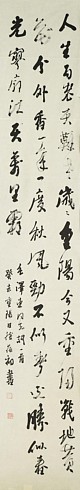 人生易老天難老歲歲重陽今又重陽戰地黃
花分外香一年一度秋風勁不似春光勝似春
光寥廓江天萬里霜
毛澤東
重陽日